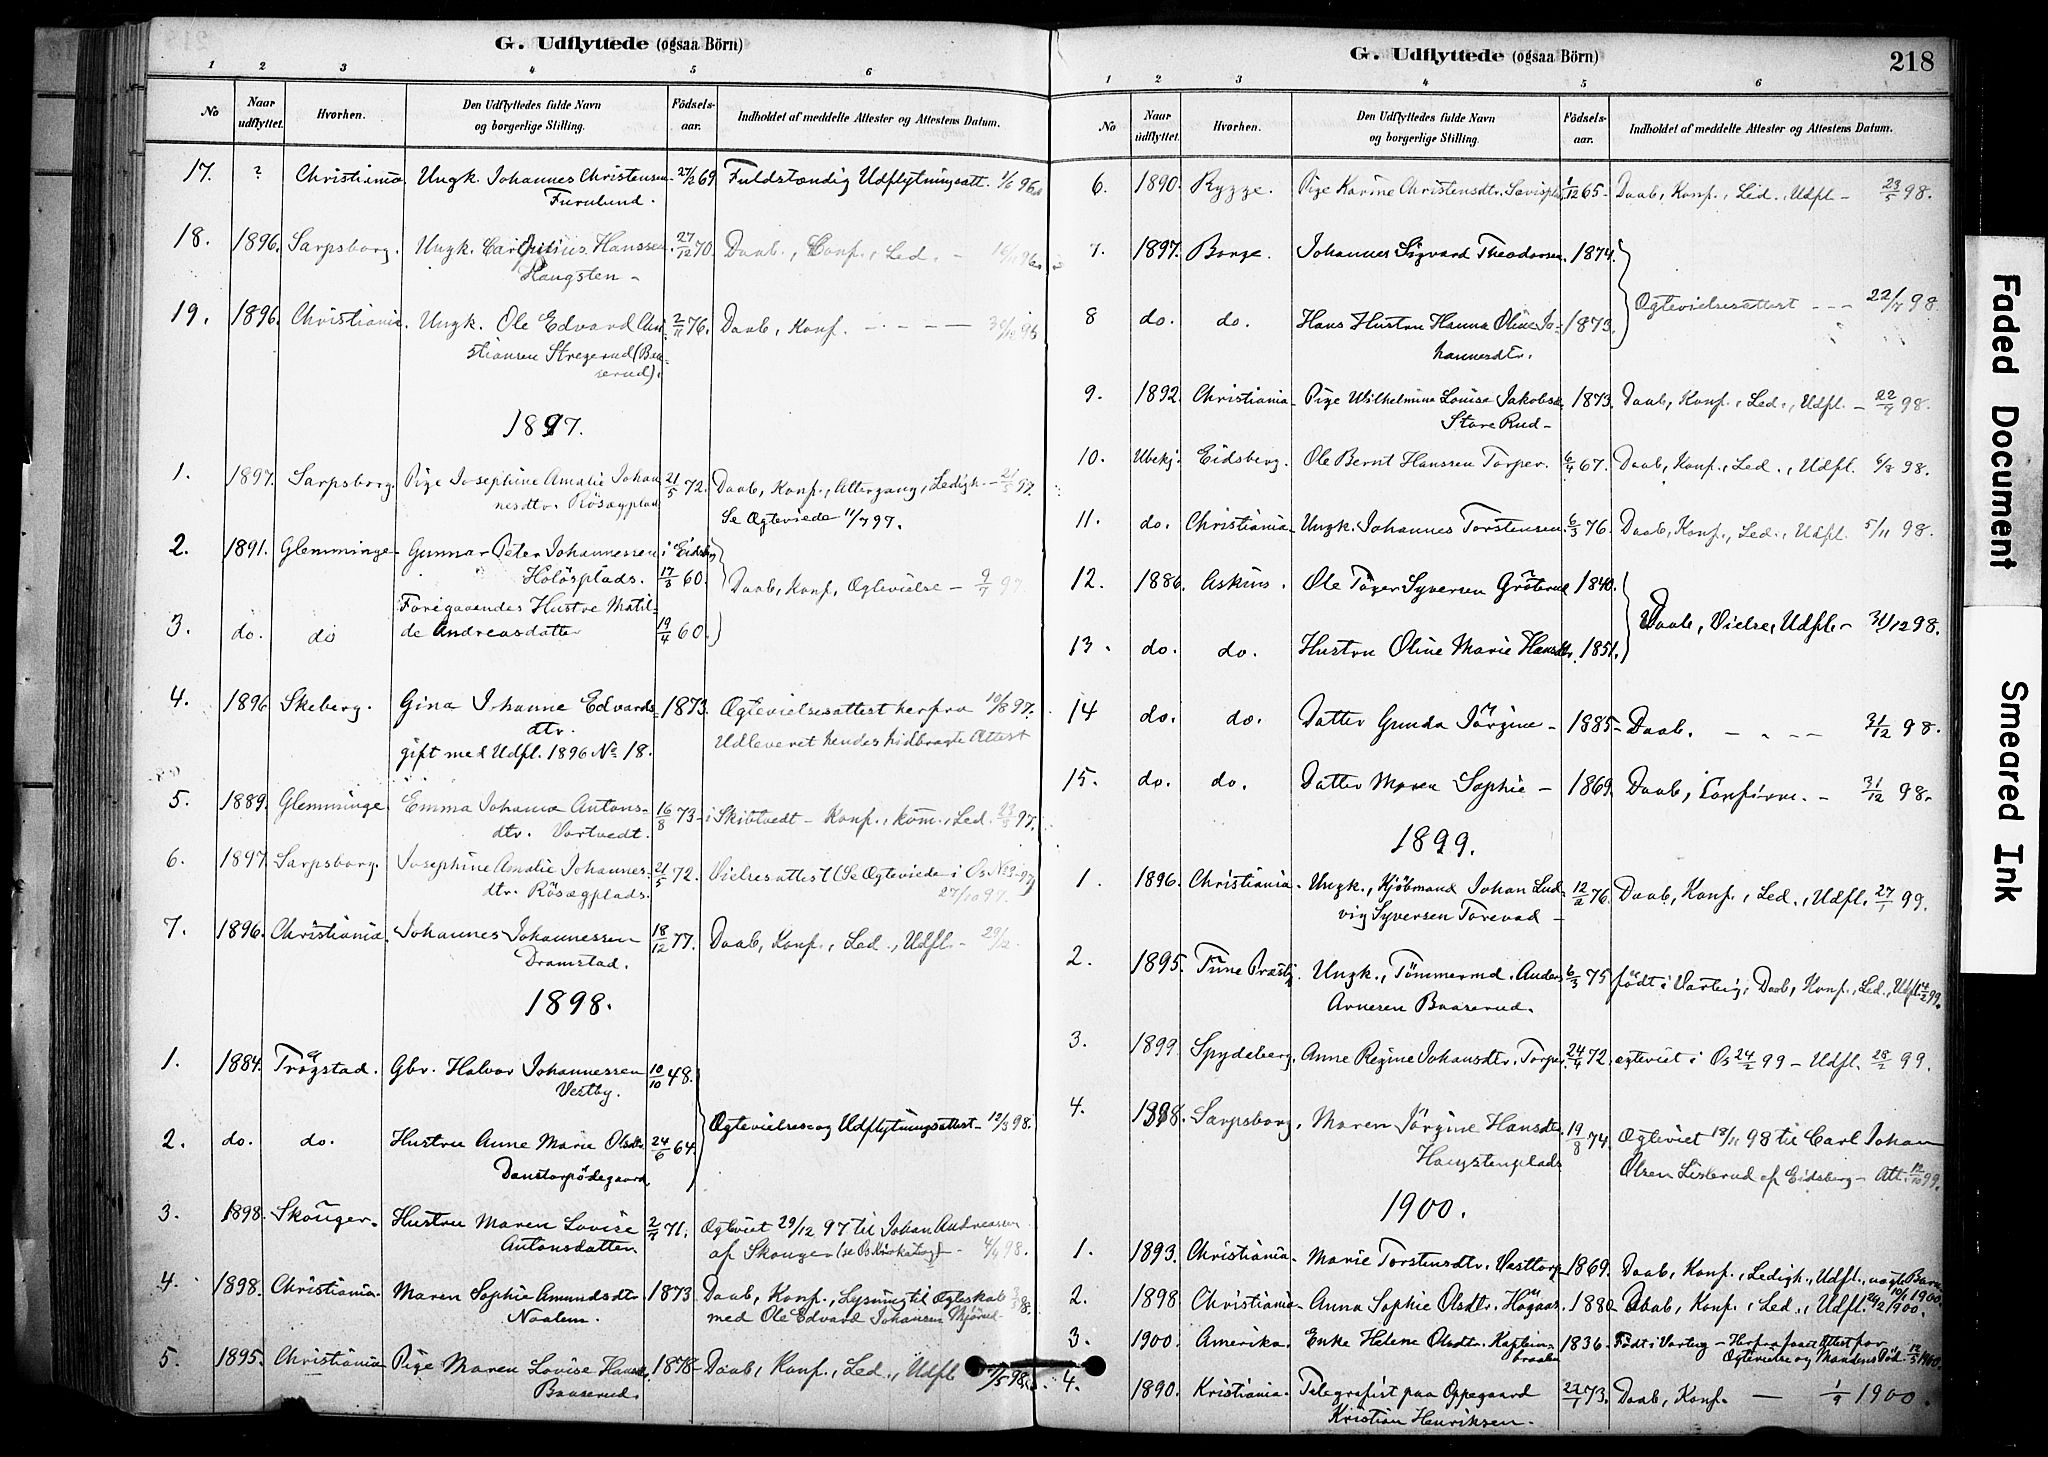 G. Udflyttede (ogsaa Börn)
1 2 3 4 5 6
No Naar udflyttet. Hvorhen. Den Udflyttedes fulde Navn og borgerlige Stilling. Födsels-aar. Indholdet af meddelte Attester og Attestens Datum.
17. ? Christiania Ungk. Johannes Christensen 27/2 69 Fuldstændig Udflytningsatt. 1/6 96
Furulund.
18. 1896. Sarpsborg. Ungk. Carl Hanssen 27/12 70. Daab., Conf., Led. -
Haugsten -
19. 1896. Christiania. Ungk. Ole Edvard Chri- 2/11 76. Daab, Konf. - - - -
stiansen Stregerud (Baa-
serud).
1897.
1. 1897. Sarpsborg. Pige Josephine Amalie Johan 21/5 72. Daab, Konf., Altergang, Ledigh. - 97.
nesdtr. Rösægplads Se Ogteviede 11/7 97.
2. 1891. Glemminge - Gunnar Peter Johannessen i Eidsbg
Holösplads. 17/3 60. Daab, Konf, Ogtevielse - 9/7 97.
Foregaaendes Hustre Matil-
3. do. do de Andreasdatter 19/4 60.
4. 1896 Skeberg. Gina Johanne Edvards- 1873. Ogtevielsesattest herfra 10/8 97.
dtr. Udleveret hendes hidbragte Attest
gift med Udfl. 1896 No 18.
5. 1889. Glemminge Emma Johanna Antons- 16/8 73 - i Skibtvedt - Konf., kom., Led. 97.
dtr. Vortvedt.
6. 1897. Sarpsborg. Josephine Amalie Johannes- 21/5 72. Vielsesattest (Se Ogteviede i Os No 3 - 97)
dtr. Rösægplads. 27/10 97.
7. 1896. Christiania. Johannes Johannessen 18/12 77. Daab, Konf., Led., Udfl. -
Dramstad.
1898.
1. 1884. Trögstad. Gbr. Halvor Johannessen 10/10 48.
Vestby.
Ogtevielses og Udflytningsattest - 12/3 98.
2. do. do. Hustru Anne Marie Olsdtr. 24/6 64.
Danstorpödegaard
3. 1898. Skouger. Hustru Maren Lovise 2/7 71. Ogteviet 29/12 97 til Johan Andreasen
Antonsdatter. af Skouger (se Os Kirkebog) - 4/4 98.
4. 1898. Christiania. Maren Sophie Amundsdtr 1873 Daab, Konf., Lysning til Ogteskab
Naalem. med Ole Edvard Johansen Mjörud
5. 1895. Christiania Pige Maren Lovise Hansd. 1878 - Daab, Konf., Led., Udfl. /5 98.
Baaserud.
G. Udflyttede (ogsaa Börn) 218
1 2 3 4 5 6
No Naar udflyttet. Hvorhen. Den Udflyttedes fulde Navn og borgerlige Stilling. Födsels-aar. Indholdet af meddelte Attester og Attestens Datum.
6. 1890. Rygge. Pige Karine Christensdtr. 1/12 65 - Daab, Konf., Led., Udfl - 23/5 98.
7. 1897. Borge. Johannes Sigvard Theodorsen. 1874.
Ogtevielsesattest - - - 22/7 98.
8 do. do. Hans Hustru Hanna Oline Jo- 1873.
hannesdtr.
9. 1892. Christiania - Pige Wilhelmina Louise Jakobsd. 1873. Daab, Konf., Led., Udfl. - 22/7 98.
Store Rud -
10. Ubekj. Eidsberg. Ole Bernt Hanssen Torper. 6/4 67. Daab, Konf., Led., Udfl. 6/8 98.
11. do. Christiania - Ungk. Johannes Torstensen. 6/3 76. Daab, Konf., Led., Udfl. 5/11 98.
12. 1886. Askims. Ole Töger Syversen Gröterud 1840.
Daab, Vielse, Udfl. - 31/12 98.
13. do. do. Hustru Oline Marie Hansdtr. 1851.
14 do. do. Datter Gunda Jörgine - 1885 - Daab. - - - 31/12 98.
15. do. do. Datter Maren Sophie - 1869. Daab, Confirm. - 31/12 98.
1899.
1. 1896. Christiania - Ungk., Kjöbmand Johan Lud- 12/2 76. Daab, Konf., Led., Udfl. 27/1 99.
vig Syversen Torevad -
2. 1895. Tune Præstgj. Ungk., Tömmermd. Anders 6/3 75 födt i Varteig, Daab, Konf., Led., Udfl. 14/2 99.
Arnesen Baaserud.
3. 1899. Spydeberg. Anne Regine Johansdtr. Torper 24/4 72. egteviet i Os 24/2 99 - Udfl. 28/2 99.
4. 1898. Sarpsborg. Maren Jörgine Hansdtr. 19/8 74. Ogteviet 18/11 98 til Carl Johan
Haugstenplads Olsen Listerud af Eidsberg - Att. 12/10 99.
1900.
1. 1893. Christiania - Marie Torstensdtr. Vasttorp 1869. Daab, Konf., Ledigh., Udfl., uægte Barn
10/1 1900.
2. 1898 Christiania - Anna Sophie Olsdtr. Högaas 1880 - Daab, Konf., Led., Udfl. 20/2 1900.
3. 1900. Amerika. Enke Helene Olsdtr. Kaptein- 1836. Födt i Varteig - Herfra faaet Attest for
braaten Ogtevielse og Mandens Död. 12/5 1900.
4. 1890. Kristiania. Telegrafist paa Oppegaard 22/1 73. Daab, Konf. - 1/9 1900.
Kristian Henriksen.
Faded Document
Smeared Ink